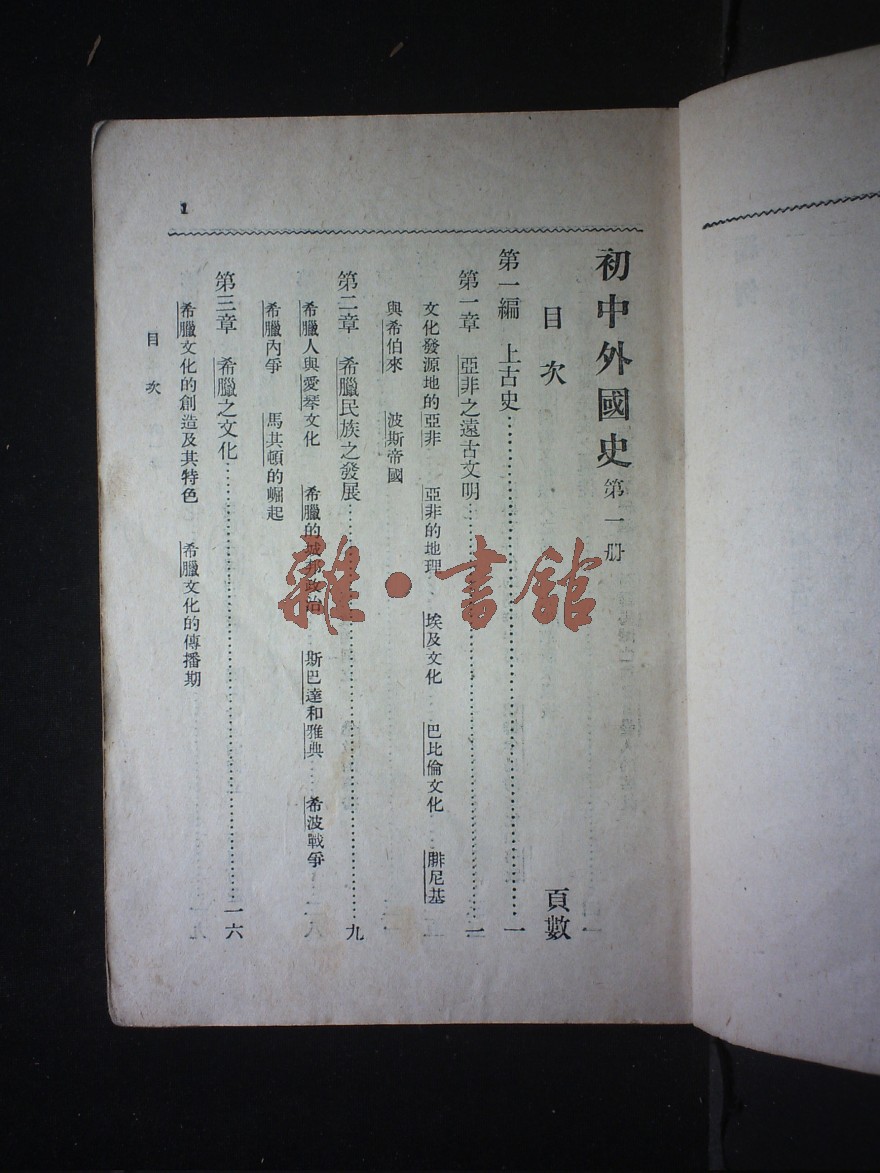 初中外國史 第一册
目次 頁數
第一編 上古史……一
第一章 亞非之遠古文明……一
文化發源地的亞非 亞非的地理 埃及文化 巴比倫文化 腓尼基
與希伯來 波斯帝國
第二章 希臘民族之發展……九
希臘人與愛琴文化 希臘的城邦政治 斯巴達和雅典 希波戰爭
希臘內爭 馬其頓的崛起
第三章 希臘之文化……一六
希臘文化的創造及其特色 希臘文化的傳播期
目次
1
雜·書館